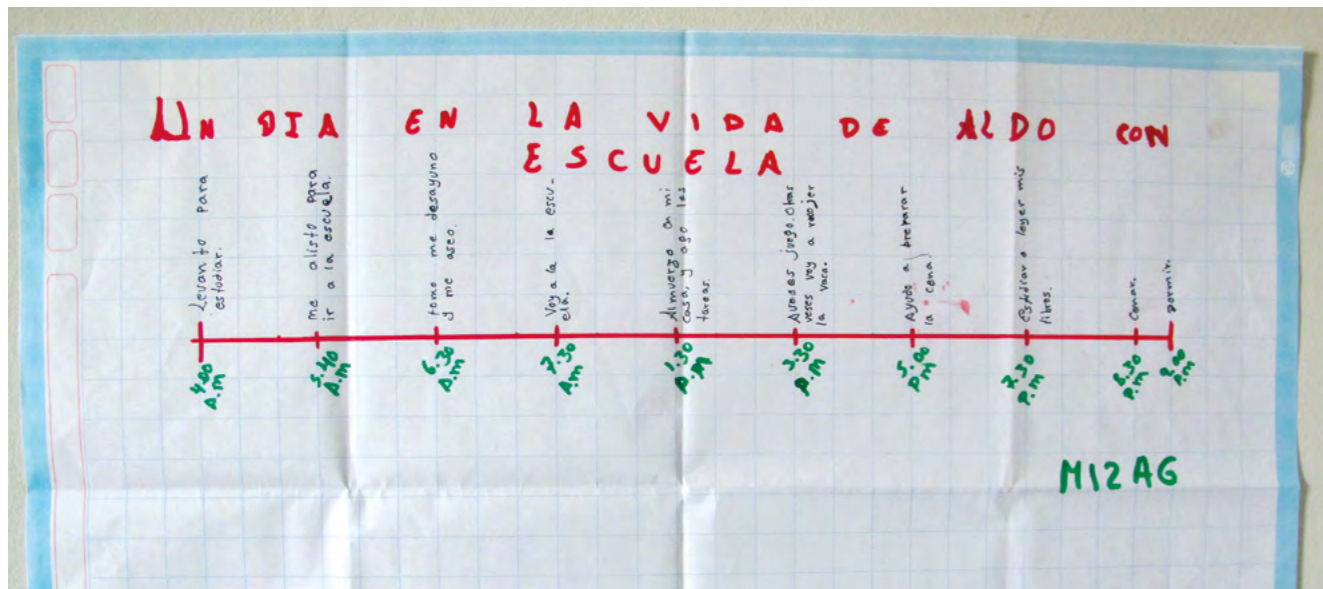 UN DIA EN LA VIDA DE ALDO CON
ESCUELA
Levanto para
estudiar.
me alisto para
ir a la escuela.
tomo me desayuno
y me aseo.
Voy a la la escu-
ela.
Almuerzo en mi
casa, y ago las
tareas.
Aveses juego. Otras
veses voy a recojer
la vaca.
Ayudo a preparar
la cena
a leyer mis
libros.
Cenar.
dormir.
4.00
A.M
5.40
A.M
6.30
A.M
7.30
A.M
1.30
P.M
3.30
P.M
5.00
P.M
7.30
P.M
8.30
P.M
9.00
P.M
M12AG